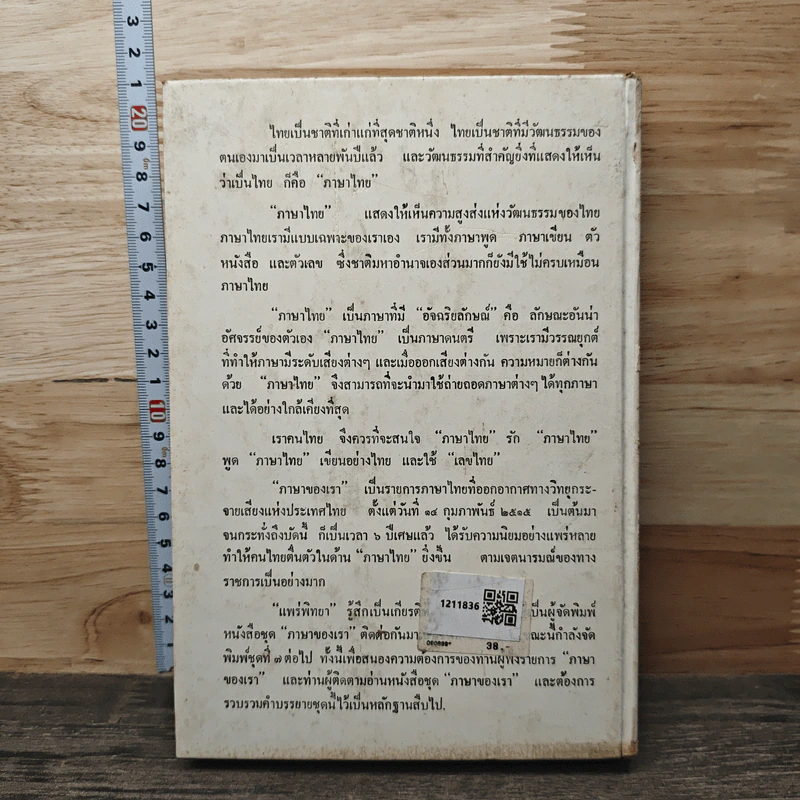 ไทยเป็นชาติที่เก่าแก่ที่สุดชาติหนึ่ง ไทยเป็นชาติที่มีวัฒนธรรมของ
ตนเองมาเป็นเวลาหลายพันปีแล้ว และวัฒนธรรมที่สำคัญยิ่งที่แสดงให้เห็น
ว่าเป็นไทย ก็คือ “ภาษาไทย”
“ภาษาไทย” แสดงให้เห็นความสูงส่งแห่งวัฒนธรรมของไทย
ภาษาไทยเรามีแบบเฉพาะของเราเอง เรามีทั้งภาษาพูด ภาษาเขียน ตัว
หนังสือ และตัวเลข ซึ่งชาติมหาอำนาจเองส่วนมากก็ยังมีใช้ไม่ครบเหมือน
ภาษาไทย
“ภาษาไทย” เป็นภาษาที่มี “อัจฉริยลักษณ์” คือ ลักษณะอันน่า
อัศจรรย์ของตัวเอง “ภาษาไทย” เป็นภาษาดนตรี เพราะเรามีวรรณยุกต์
ที่ทำให้ภาษามีระดับเสียงต่างๆ และเมื่อออกเสียงต่างกัน ความหมายก็ต่างกัน
ด้วย “ภาษาไทย” จึงสามารถที่จะนำมาใช้ถ่ายถอดภาษาต่างๆ ได้ทุกภาษา
และได้อย่างใกล้เคียงที่สุด
เราคนไทย จึงควรที่จะสนใจ “ภาษาไทย” รัก “ภาษาไทย”
พูด “ภาษาไทย” เขียนอย่างไทย และใช้ “เลขไทย”
“ภาษาของเรา” เป็นรายการภาษาไทยที่ออกอากาศทางวิทยุกระ-
จายเสียงแห่งประเทศไทย ตั้งแต่วันที่ ๑๔ กุมภาพันธ์ ๒๕๑๕ เป็นต้นมา
จนกระทั่งถึงบัดนี้ ก็เป็นเวลา ๖ ปีเศษแล้ว ได้รับความนิยมอย่างแพร่หลาย
ทำให้คนไทยตื่นตัวในด้าน “ภาษาไทย” ยิ่งขึ้น ตามเจตนารมณ์ของทาง
ราชการเป็นอย่างมาก
“แพร่พิทยา” รู้สึกเป็นเกียรติ เป็นผู้จัดพิมพ์
หนังสือชุด “ภาษาของเรา” ติดต่อกันมา ณะนี้กำลังจัด
พิมพ์ชุดที่ ๗ ต่อไป ทั้งนี้เพื่อสนองความต้องการของท่านผู้ฟังรายการ “ภาษา
ของเรา” และท่านผู้ติดตามอ่านหนังสือชุด “ภาษาของเรา” และต้องการ
รวบรวมคำบรรยายชุดนี้ไว้เป็นหลักฐานสืบไป.
1211836
38.-
3
2
1
20
9
8
7
6
5
4
3
2
1
10
9
8
7
6
5
4
3
2
1